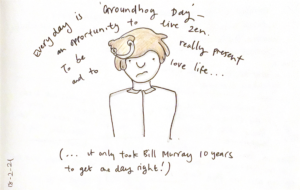 Every day is 'Groundhog Day' –
an opportunity to live zen.
To be really present
and to love life...
(... it only took Bill Murray 10 years
to get one day right!)